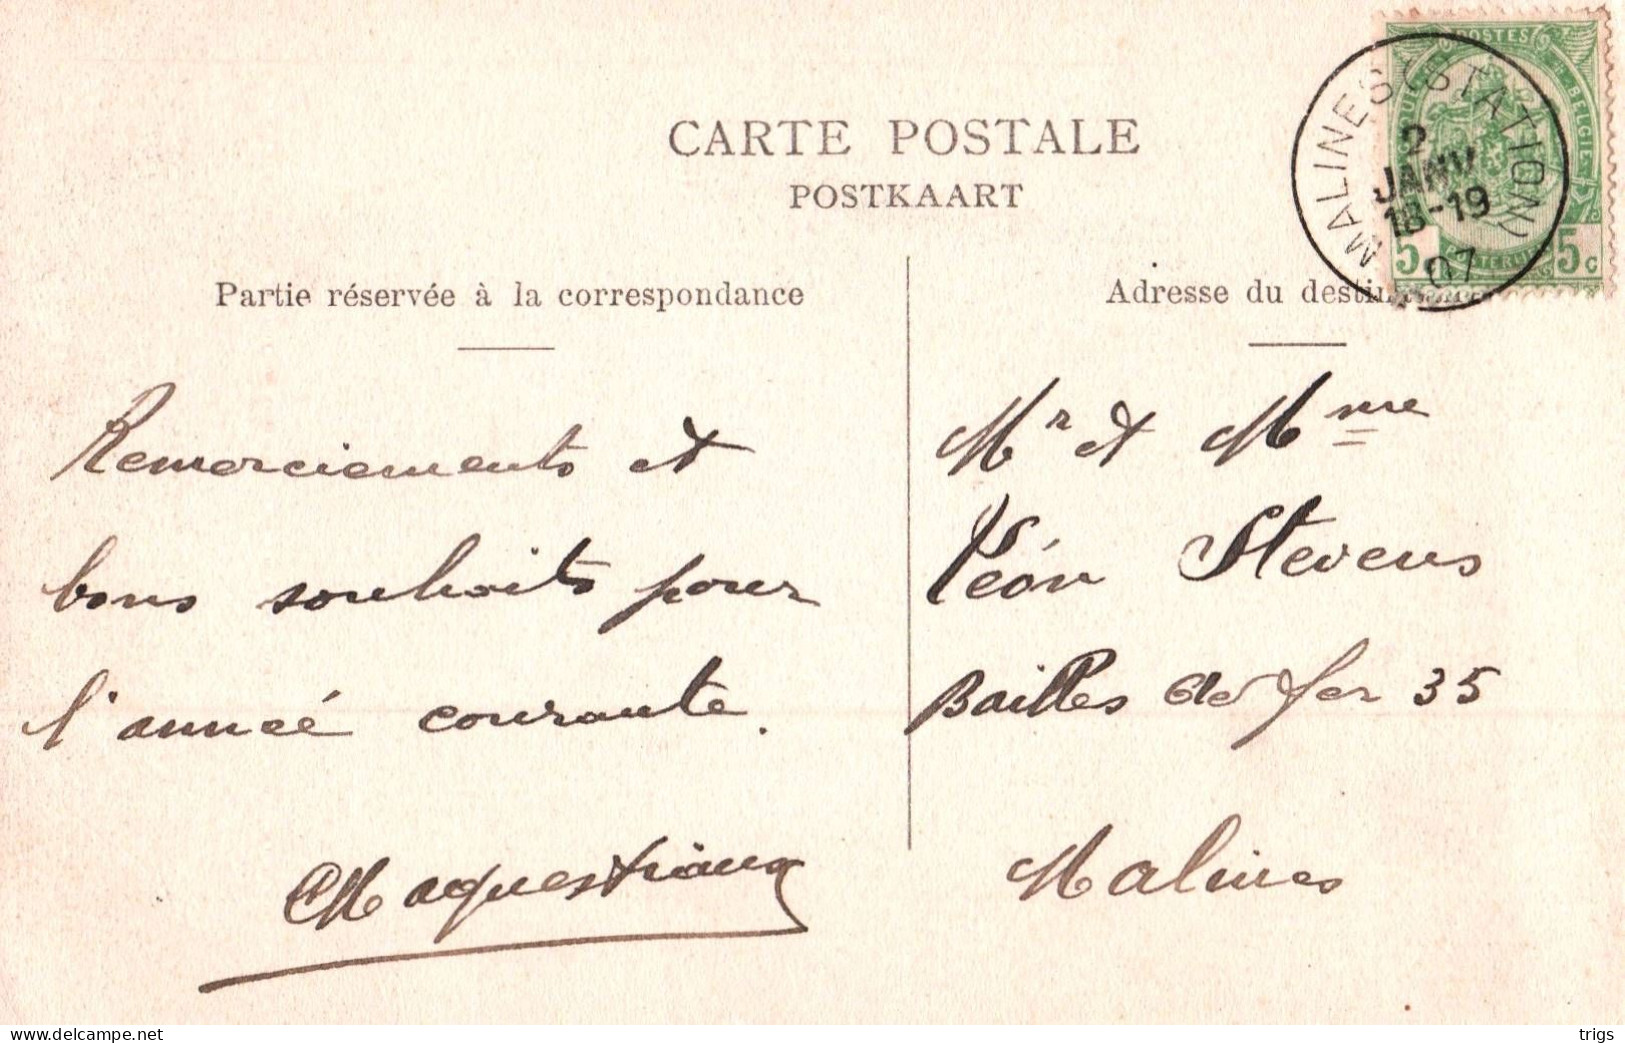 CARTE POSTALE
POSTKAART
POSTES
BELGIE
MALINES (STATION)
2
JANV
18-19
07
5 5 c
Partie réservée à la correspondance
Remerciements et
bons souhaits pour
l'année courante.
Adresse du
Mr et Mme
Léon Stevens
Bailles de fer 35
Malines
www.delcampe.net
trigs